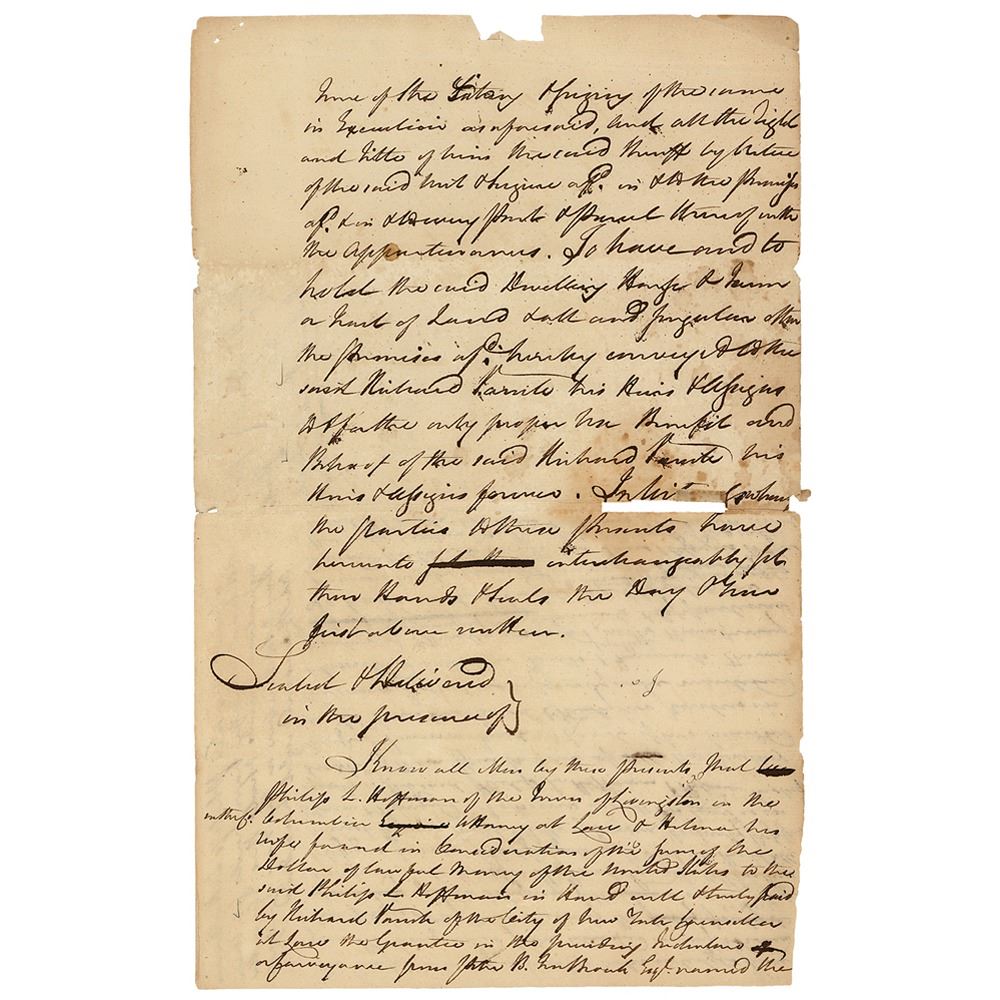 time of the of the same
in Execution as aforesaid, and all the right
and title of him the said Sheriff by Virtue
of the said writ & seizure afd. in & to the premises
afd. & in & to every part & parcel thereof with
the Appurtenances. To have and to
hold the said Dwelling House & Farm
or tract of Land & all and singular other
the premises afd. hereby conveyed to the
said Richard Varick his Heirs & Assigns
to & for the only proper Use Benefit and
Behoof of the said Richard Varick his
Heirs & Assigns forever. In Whereof
the parties to these presents have
hereunto interchangeably set
their Hands & Seals the Day & Year
first above written.
Sealed & Delivered
in the presence of
Know all Men by these presents that
Philip L. Hoffman of the Town of Livingston in the
Columbia Attorney at Law & Helena his
wife for and in Consideration of the sum of
Dollar of lawful Money of the United States to the
said Philip L. Hoffman in Hand well & truly paid
by Richard Varick of the City of New York Counsellor
at Law the Grantee in the preceding Indenture
or Conveyance from John B. Esqr. named the